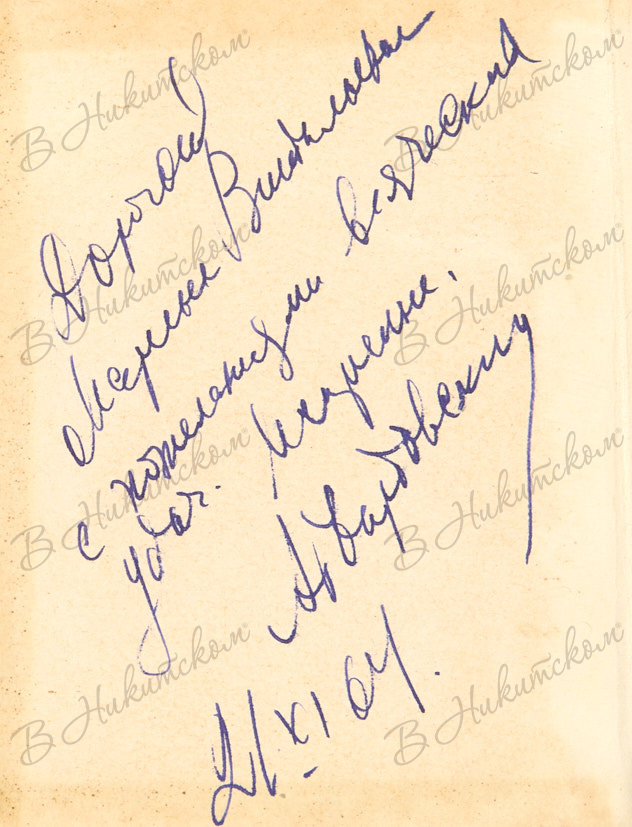 Дорогой
Марине Витальевне
с пожеланиями всяческих
удач. Искренне,
А Твардовский
XI 64.
В Никитском
В Никитском
В Никитском
В Никитском
В Никитском
В Никитском
В Никитском
В Никитском